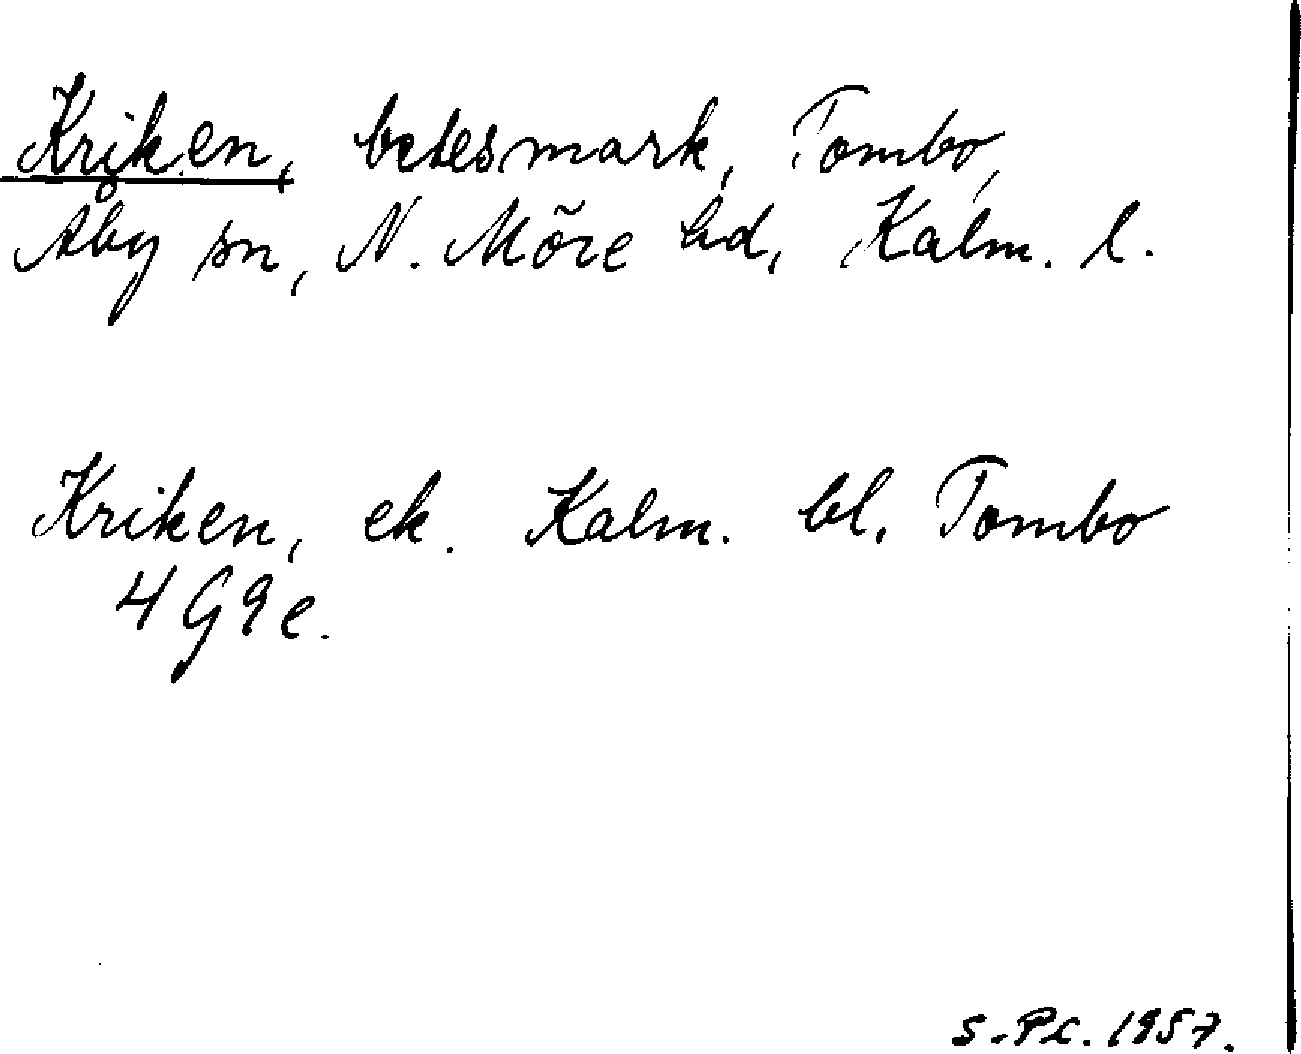 Kriken, betesmark, Tombo,
Åby sn, N. Möre hd, Kalm. l.
Kriken, ek. Kalm. bl. Tombo
4 G 9 e.
S-PL. 1957.